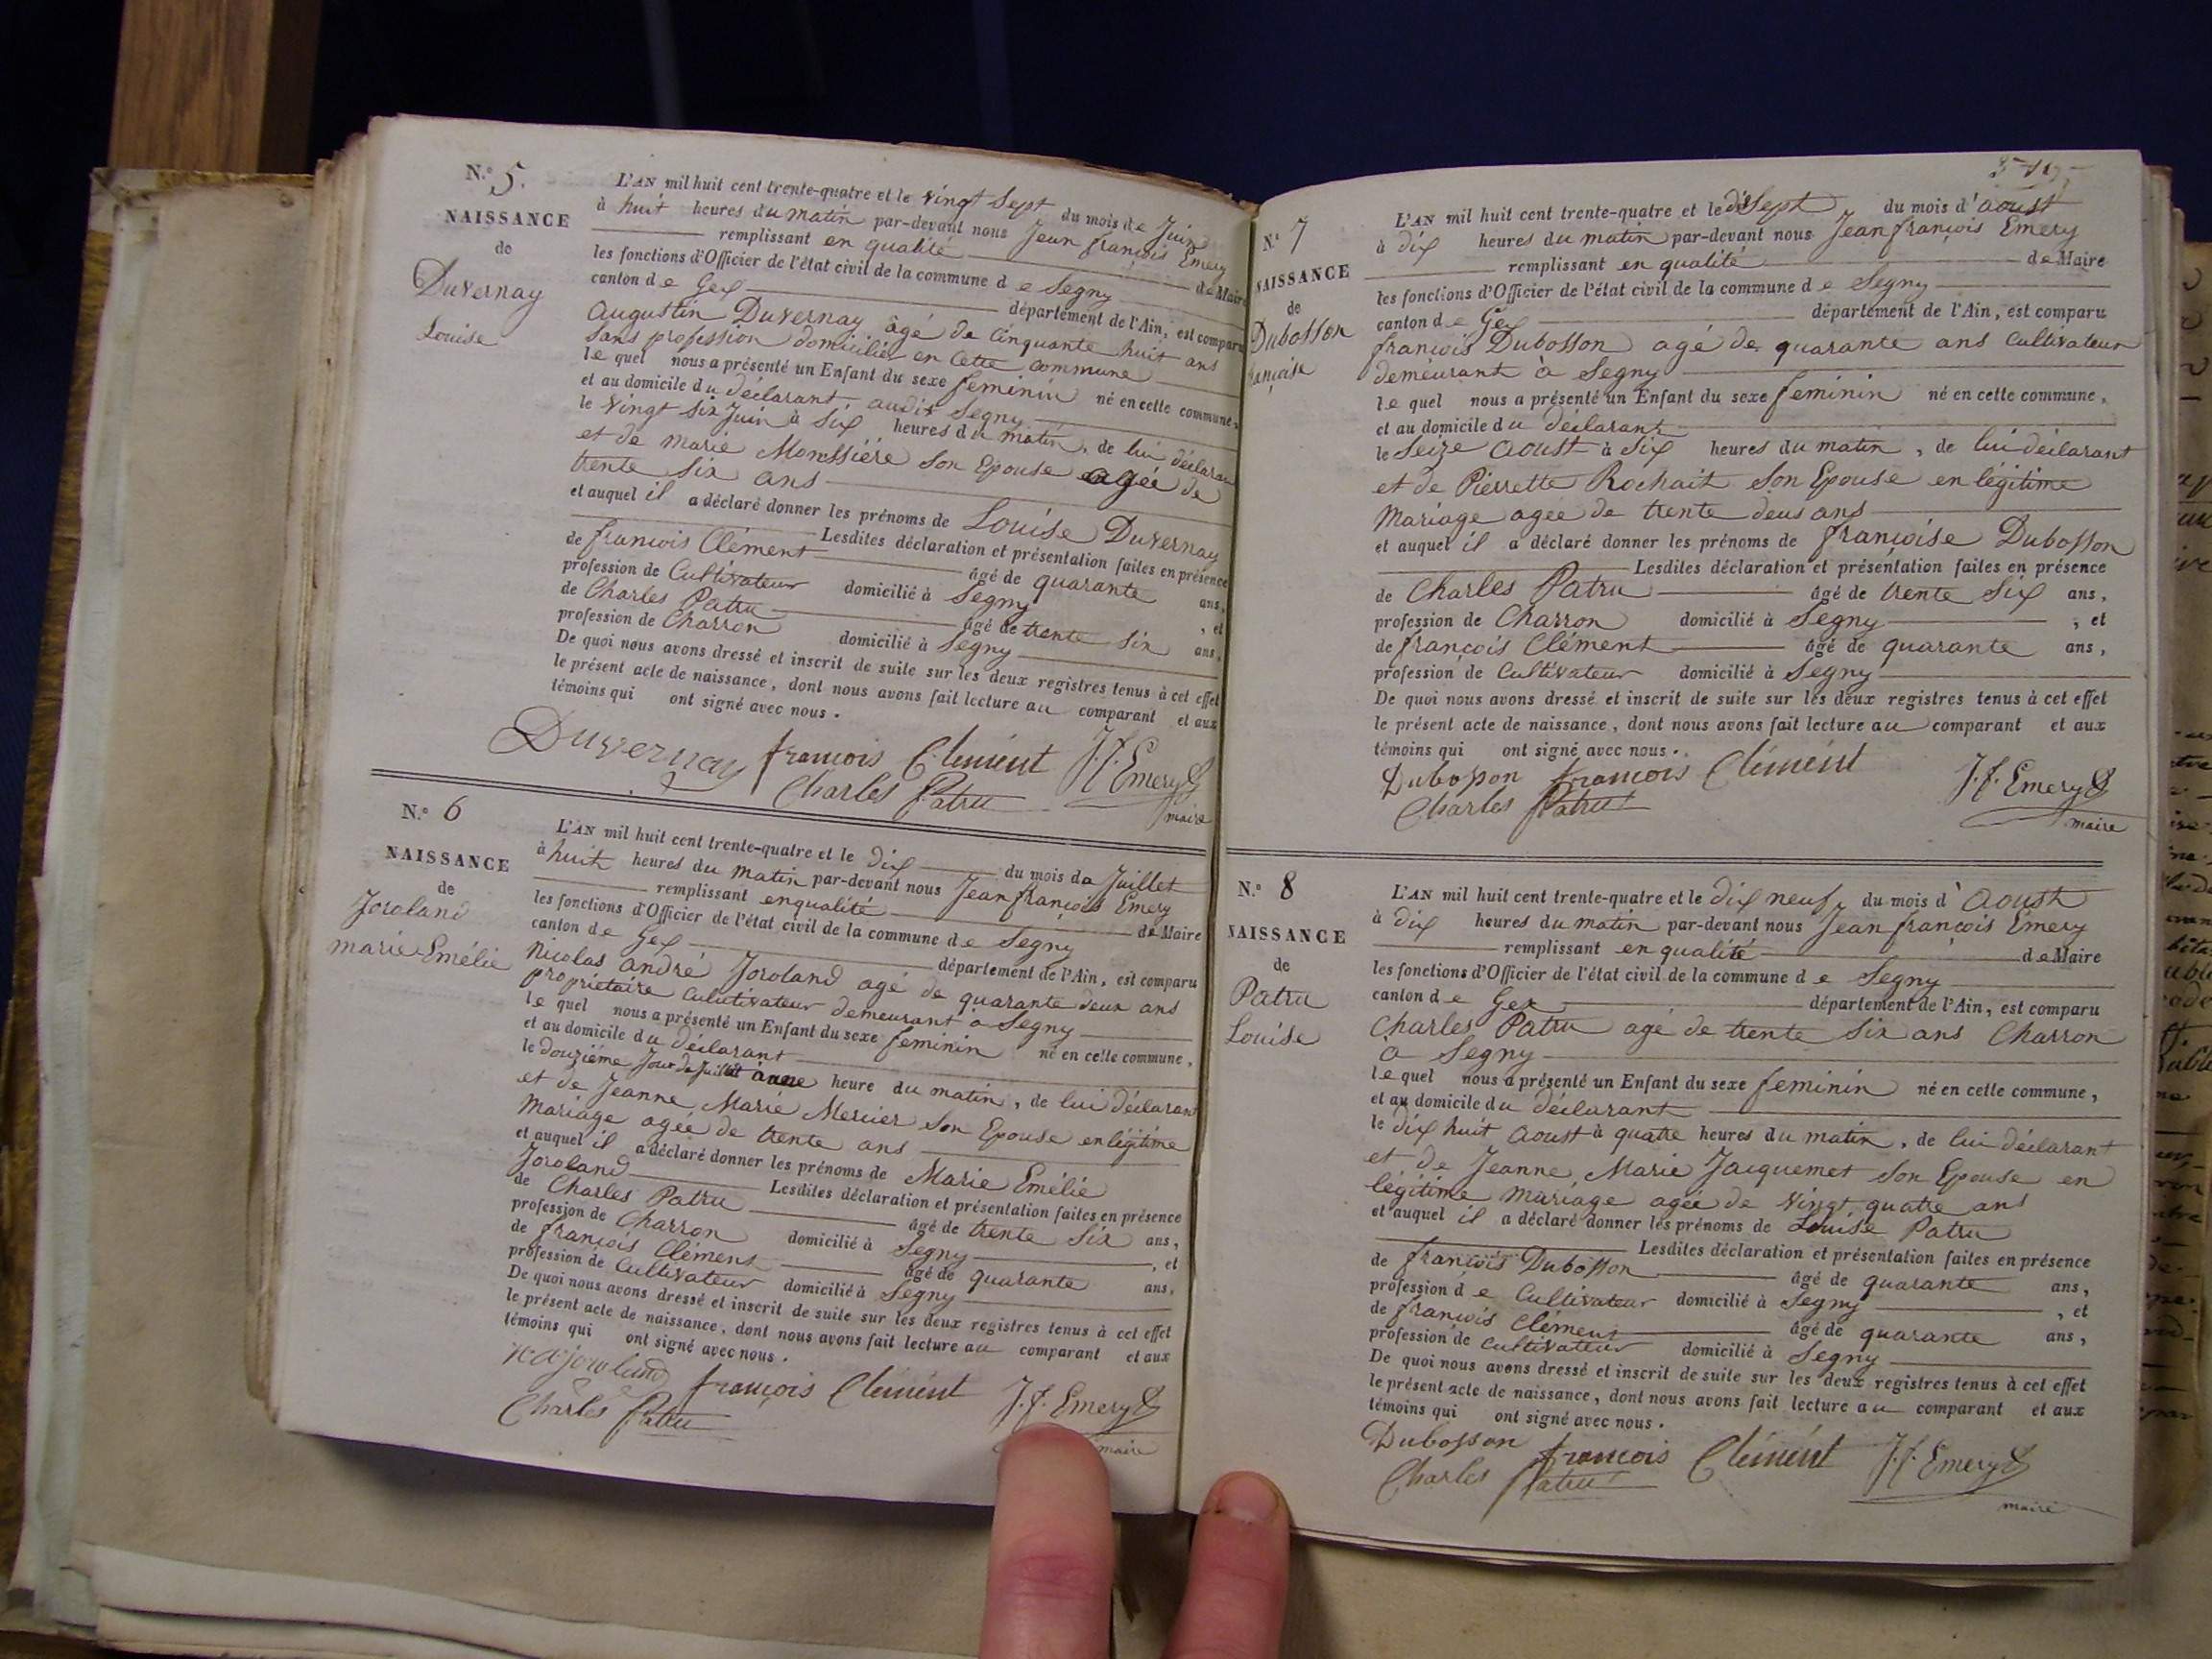 N.º 5.
NAISSANCE
de
Duvernay
Louise
L'AN mil huit cent trente-quatre et le vingt Sept du mois de Juin
à huit heures du matin par-devant nous Jean françois Emery
remplissant en qualité de Maire
les fonctions d'Officier de l'état civil de la commune de Segny
canton de Gex département de l'Ain, est comparu
Augustin Duvernay agé de Cinquante huit ans
Sans profession domicilié en Cette Commune
le quel nous a présenté un Enfant du sexe feminin né en cette commune,
et au domicile du déclarant audit Segny
le vingt Six Juin à Six heures du matin, de lui déclarant
et de marie Son Epouse agée de
trente Six ans
et auquel il a déclaré donner les prénoms de Louise Duvernay
Lesdites déclaration et présentation faites en présence
de françois Clément âgé de quarante ans,
profession de Cultivateur domicilié à Segny , et
de Charles Patru âgé de trente Six ans,
profession de Charron domicilié à Segny
De quoi nous avons dressé et inscrit de suite sur les deux registres tenus à cet effet
le présent acte de naissance, dont nous avons fait lecture au comparant et aux
témoins qui ont signé avec nous.
Duvernay françois Clément J. f. Emery
Charles Patru maire
N.º 6
NAISSANCE
de
Joroland
marie-Emélie
L'AN mil huit cent trente-quatre et le dix du mois de Juillet
à huit heures du matin par-devant nous Jean françois Emery
remplissant en qualité de Maire
les fonctions d'Officier de l'état civil de la commune de Segny
canton de Gex département de l'Ain, est comparu
Nicolas andré Joroland agé de quarante deux ans
propriétaire Culutivateur demeurant à Segny
le quel nous a présenté un Enfant du sexe feminin né en cette commune,
et au domicile du déclarant
le Jour de Juillet à une heure du matin, de lui déclarant
et de Jeanne Marie Mercier Son Epouse en légitime
Mariage agée de trente ans
et auquel il a déclaré donner les prénoms de Marie Emélie
Joroland Lesdites déclaration et présentation faites en présence
de Charles Patru âgé de trente Six ans,
profession de Charron domicilié à Segny , et
de françois Clément âgé de quarante ans,
profession de Cultivateur domicilié à Segny
De quoi nous avons dressé et inscrit de suite sur les deux registres tenus à cet effet
le présent acte de naissance, dont nous avons fait lecture au comparant et aux
témoins qui ont signé avec nous.
joroland françois Clément J. f. Emery
Charles Patru maire
N.º 7
NAISSANCE
de
Dubosson
ançoise
L'AN mil huit cent trente-quatre et le dix Sept du mois d'aoust
à dix heures du matin par-devant nous Jean françois Emery
remplissant en qualité de Maire
les fonctions d'Officier de l'état civil de la commune de Segny
canton de Gex département de l'Ain, est comparu
françois Dubosson agé de quarante ans Cultivateur
demeurant à Segny
le quel nous a présenté un Enfant du sexe feminin né en cette commune,
et au domicile du déclarant
le Seize aoust à Six heures du matin, de lui déclarant
et de Pierrette Rochait Son Epouse en légitime
Mariage agée de trente deus ans
et auquel il a déclaré donner les prénoms de françoise Dubosson
Lesdites déclaration et présentation faites en présence
de Charles Patru âgé de trente Six ans,
profession de Charron domicilié à Segny , et
de françois Clément âgé de quarante ans,
profession de Cultivateur domicilié à Segny
De quoi nous avons dressé et inscrit de suite sur les deux registres tenus à cet effet
le présent acte de naissance, dont nous avons fait lecture au comparant et aux
témoins qui ont signé avec nous.
Dubosson françois Clément J. f. Emery
Charles Patru maire
N.º 8
NAISSANCE
de
Patru
Louise
L'AN mil huit cent trente-quatre et le dix neuf du mois d'Aoust
à dix heures du matin par-devant nous Jean françois Emery
remplissant en qualité de Maire
les fonctions d'Officier de l'état civil de la commune de Segny
canton de Gex département de l'Ain, est comparu
Charles Patru agé de trente Six ans Charron
à Segny
le quel nous a présenté un Enfant du sexe feminin né en cette commune,
et au domicile du déclarant
le dix huit Aoust à quatre heures du matin, de lui déclarant
et de Jeanne Marie Jacquemet Son Epouse en
légitime mariage agée de vingt quatre ans
et auquel il a déclaré donner les prénoms de Louise Patru
Lesdites déclaration et présentation faites en présence
de françois Dubosson âgé de quarante ans,
profession de Cultivateur domicilié à Segny , et
de françois Clément âgé de quarante ans,
profession de Cultivateur domicilié à Segny
De quoi nous avons dressé et inscrit de suite sur les deux registres tenus à cet effet
le présent acte de naissance, dont nous avons fait lecture au comparant et aux
témoins qui ont signé avec nous.
Dubosson françois Clément J. f. Emery
Charles Patru maire